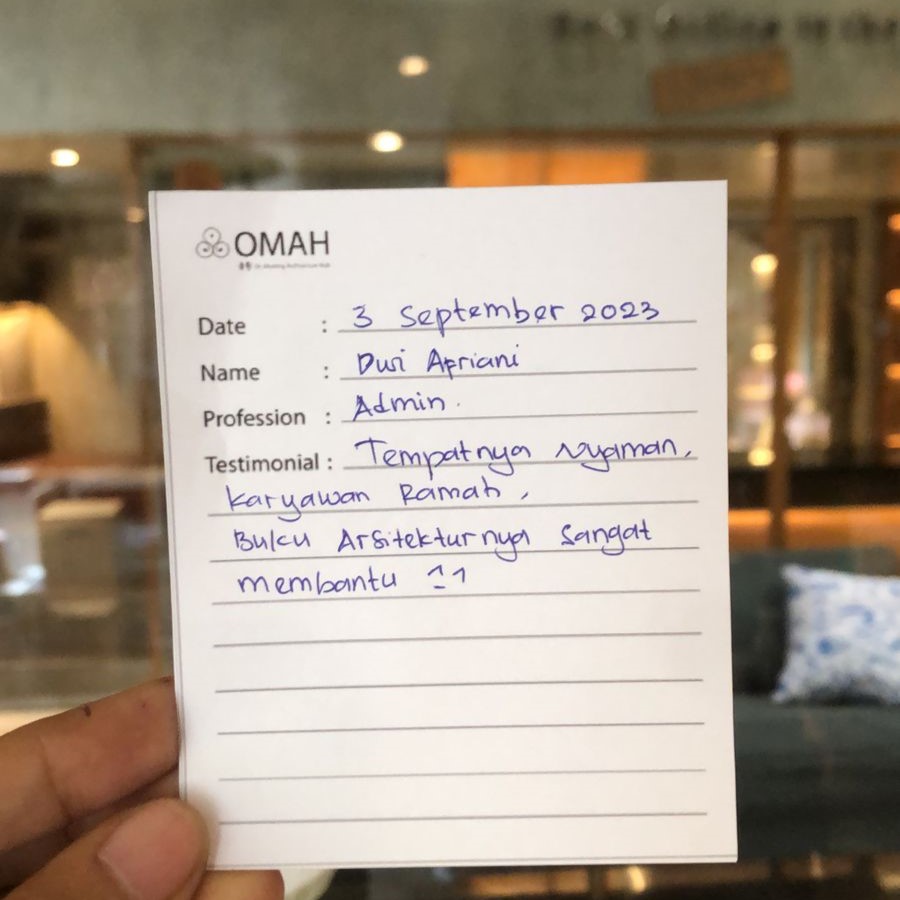 OMAH
Date : 3 September 2023
Name : Dwi Apriani
Profession : Admin.
Testimonial : Tempatnya Nyaman,
Karyawan Ramah,
Buku Arsitekturnya Sangat
membantu ^_^